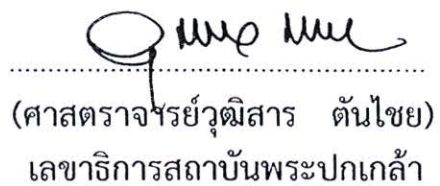 (ศาสตราจารย์วุฒิสาร ตันไชย)
เลขาธิการสถาบันพระปกเกล้า